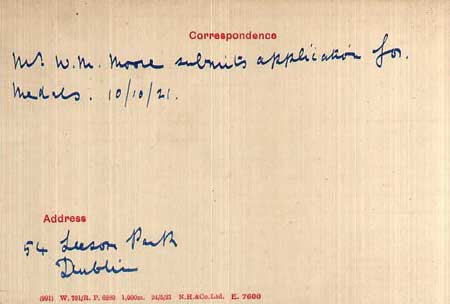 Correspondence
Mr. W. M. Moore submits application for.
Medals. 10/10/21.
Address
54 Leeson Park
Dublin
(991) W. 791/R. P. 6280 1,000m. 24/5/21 N.H.&Co.Ltd. E. 7600